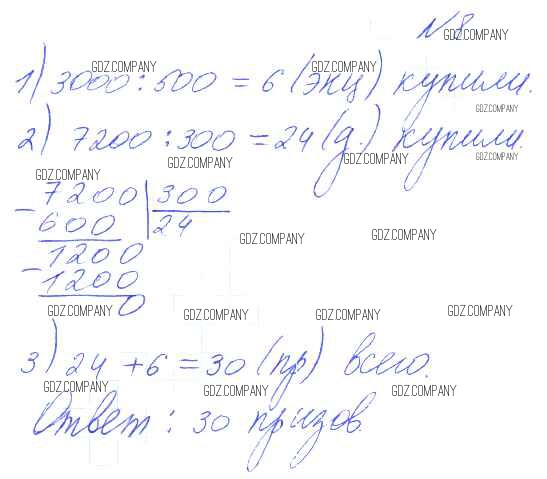 №8
GDZ.COMPANY
GDZ.COMPANY GDZ.COMPANY
1) 3000 : 500 = 6 (энц) купили.
GDZ.COMPANY
2) 7200 : 300 = 24 (д.) купили.
GDZ.COMPANY GDZ.COMPANY GDZ.COMPANY
GDZ.COMPANY
- 7200 | 300
600 24
GDZ.COMPANY GDZ.COMPANY
- 1200
1200
0
GDZ.COMPANY GDZ.COMPANY GDZ.COMPANY GDZ.COMPANY
3) 24 + 6 = 30 (пр) всего.
GDZ.COMPANY GDZ.COMPANY GDZ.COMPANY
Ответ : 30 призов.